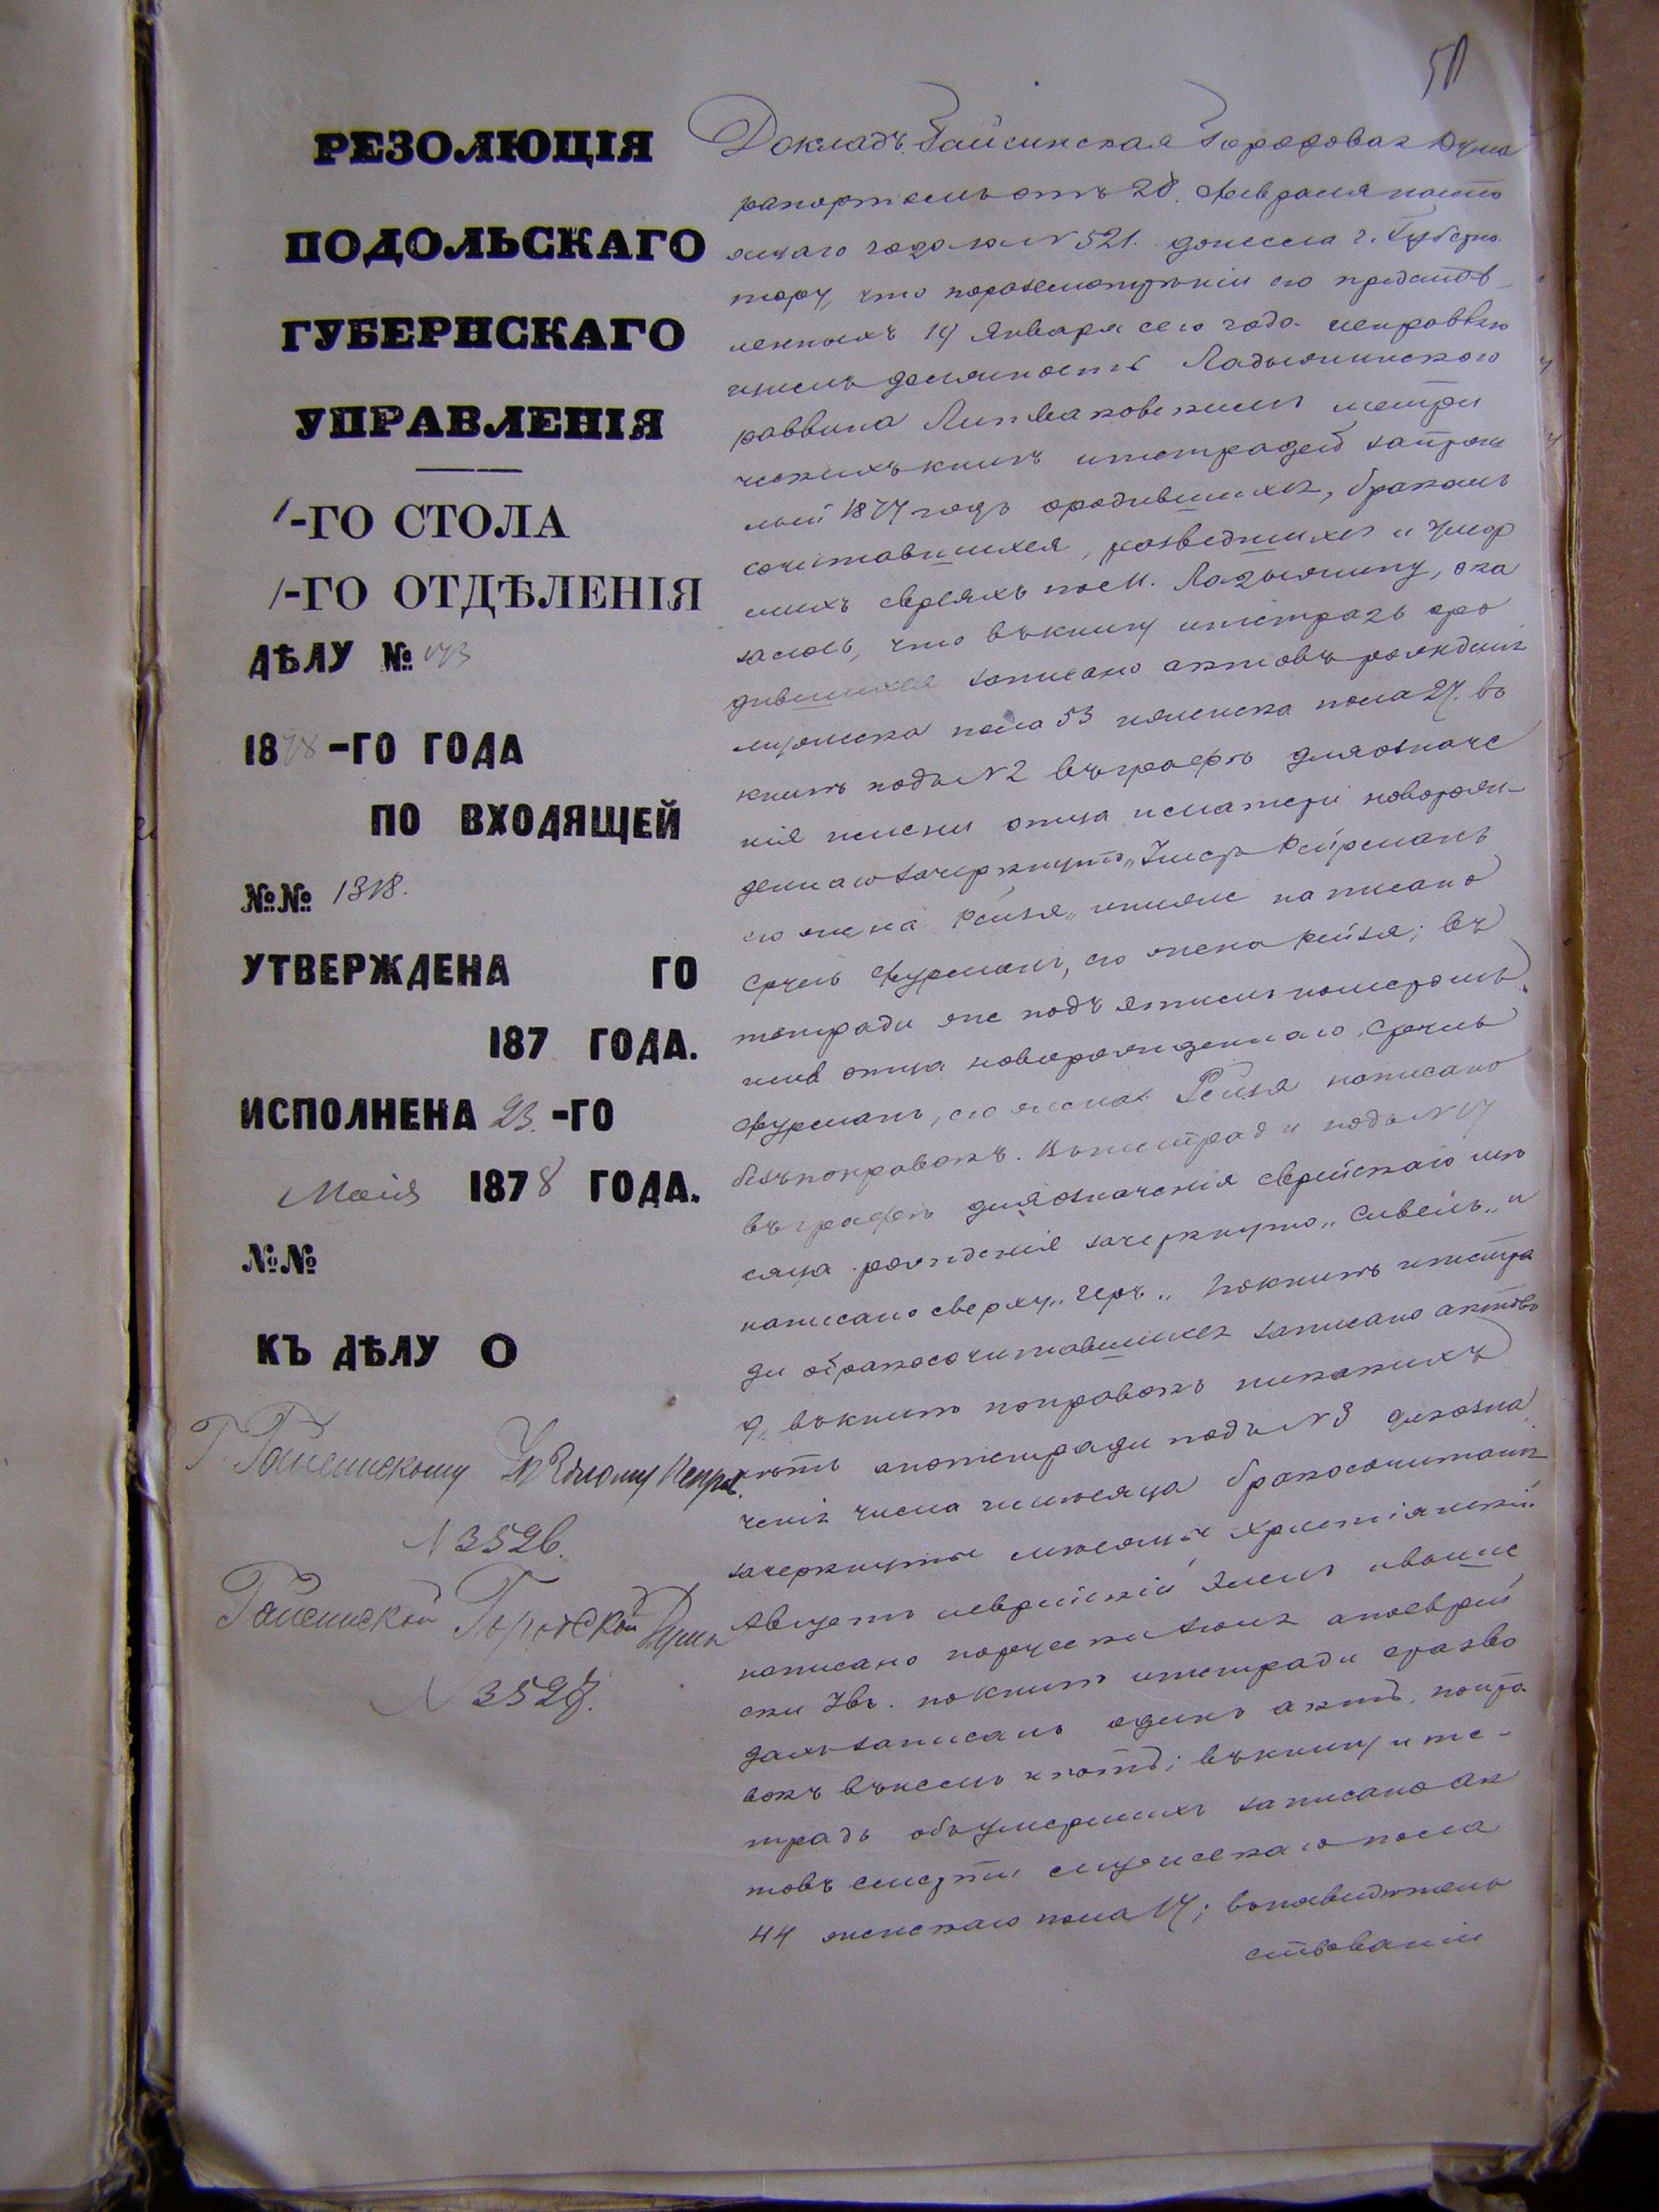 50
РЕЗОЛЮЦІЯ
ПОДОЛЬСКАГО
ГУБЕРНСКАГО
УПРАВЛЕНІЯ
1-ГО СТОЛА
1-ГО ОТДѢЛЕНІЯ
ДѢЛУ № 173
1878-ГО ГОДА
ПО ВХОДЯЩЕЙ
№№ 1318.
УТВЕРЖДЕНА ГО
187 ГОДА.
ИСПОЛНЕНА 23.-ГО
Маія 1878 ГОДА.
№№
КЪ ДѢЛУ О
Г. Гайсинскому Уѣздному Исправ.
N 3526.
Гайсинской Городской Думѣ
N 3527.
Докладъ. Гайсинская Городовая Дума
рапортомъ отъ 28. Февраля насто
ящаго года за N 521. донесла г. Губерна
тору, что по разсмотрѣніи ею представ_
ленныхъ 19 Января сего года исправляю
щимъ должность Ладыжинского
раввина метри
ческихъ книгъ и тетрадей за прош
лый 1877 годъ о родившихся, бракомъ
сочитавшихся, разведшихся и умер
шихъ евреяхъ по м. Ладыжину, ока
залось, что въ книгу и тетрадь о ро
дившихся записано актовъ рожденія
мужеска пола 53 и женска пола 27. въ
книгѣ подъ N 2 въ графѣ для означе
нія имени отца и матери новорож-
деннаго зачеркнуто „Умер Фейрманъ
его жена Рейзя„ и ниже написано
Сруль Фурманъ, его жена Рейзя; въ
тетради же подъ этимъ номеромъ
имя отца новорожденнаго Сруль
Фурманъ, его жена Рейзя написано
безъ поправокъ. Въ тетради подъ N 17
въ графѣ для означенія еврейскаго мѣ
сяца рожденія зачеркнуто „Сивель„ и
написано сверху „Іеръ„ По книгѣ и тетра
ди о бракосочитавшихся записано актовъ
9, въ книгѣ поправокъ никакихъ
нѣтъ а по тетради подъ N 3 для озна
ченія числа и мѣсяца бракосочитанія
зачеркнуты мѣсяцы христіанскій
Августъ и еврейскій Элемъ и выше
написано по русски Іюня а по еврей
ски Ів. по книгѣ и тетради о разво
дахъ записанъ одинъ актъ, попра
вокъ въ немъ нѣтъ; въ книгу и те-
традь объ умершихъ записано ак
товъ смерти мужескаго пола
44 женскаго пола 17; въ освидѣтель
ствованіи